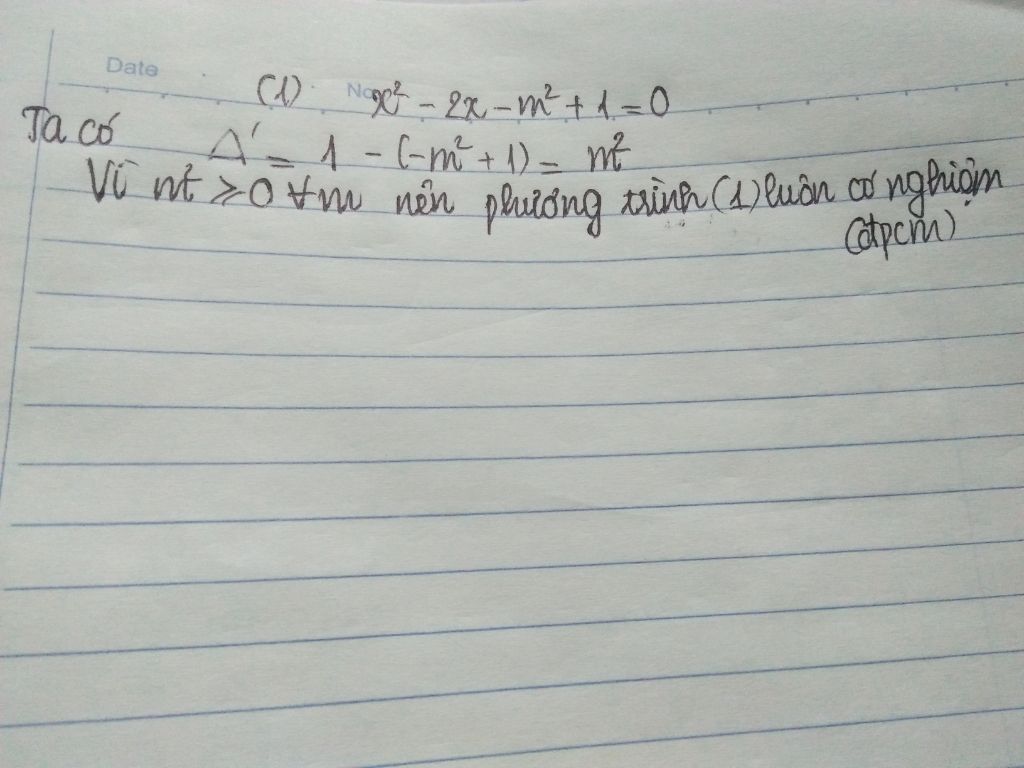 Date
No
(1) x² - 2x - m² + 1 = 0
Ta có
Δ' = 1 - (-m² + 1) = m²
Vì m² ≥ 0 ∀m nên phương trình (1) luôn có nghiệm
(đpcm)